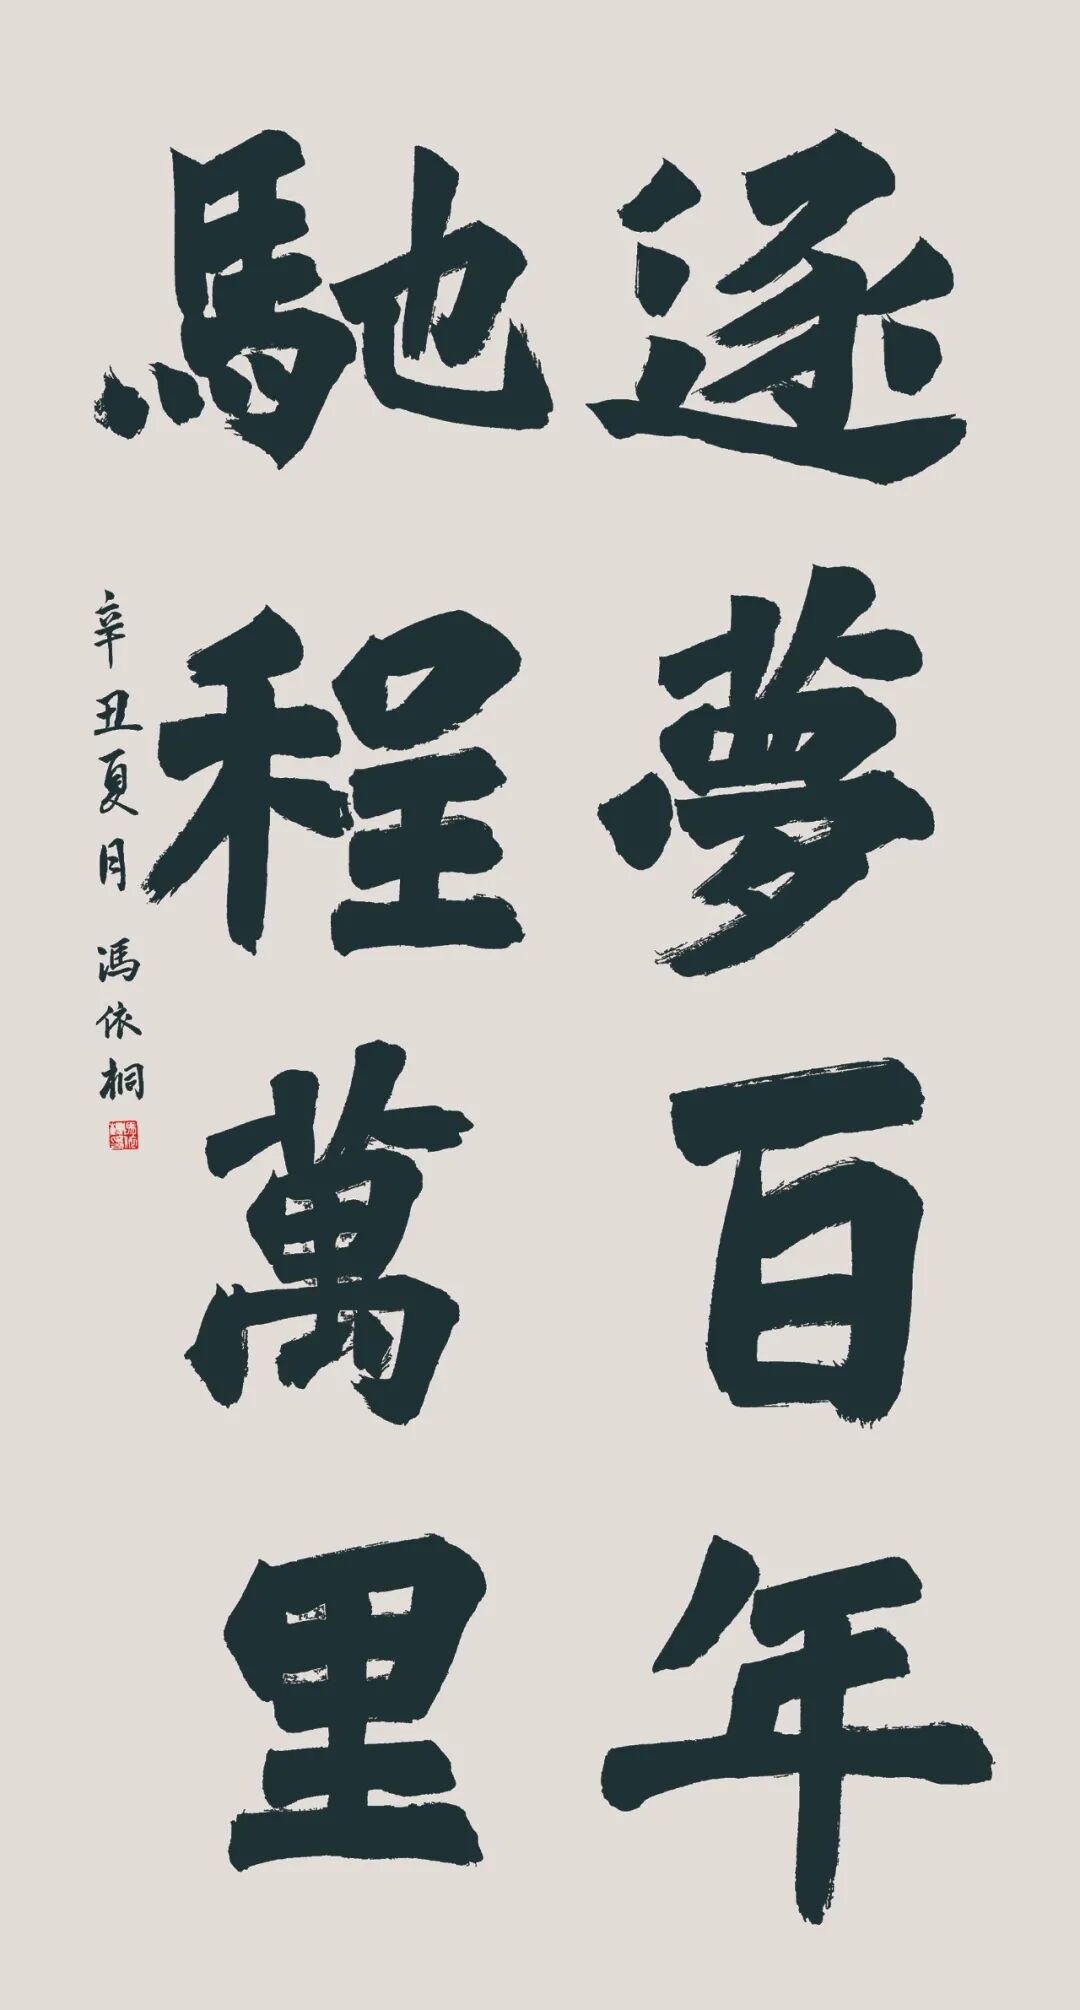 逐夢百年
馳程萬里
辛丑夏月 馮依桐